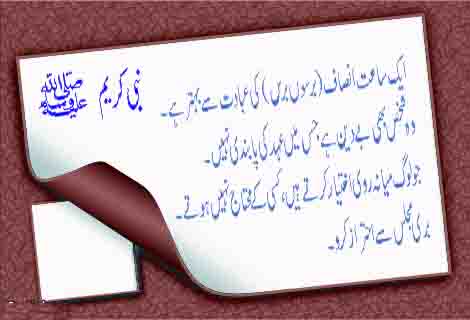 نبی کریم ﷺ
ایک ساعت انصاف (برسوں برس) کی عبادت سے بہتر ہے۔
وہ شخص بھی بے دین ہے، جس میں عہد کی پابندی نہیں۔
جو لوگ میانہ روی اختیار کرتے ہیں، کسی کے محتاج نہیں ہوتے۔
بری مجلس سے احتراز کرو۔